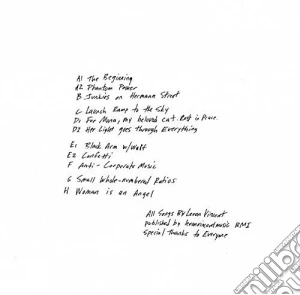 A1 The Beginning
A2 Phantom Power
B Junkies on Hermann Street
C Launch Ramp to the Sky
D1 For Mimi, my beloved cat. Rest in Peace.
D2 Her Light goes through Everything
E1 Black Arm w/Wolf
E2 Confetti
F Anti-Corporate Music
G Small Whole-numbered Ratios
H Woman is an Angel
All Songs By Loren Vincent
published by music BMI
Special Thanks to Everyone